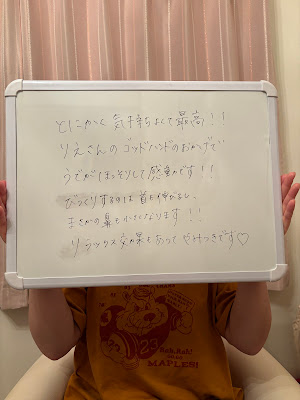 とにかく気持ちよくて最高!!
りえさんのゴッドハンドのおかげで
うでがほっそりして感動です!!
びっくりするのは首も伸びるし、
まさかの鼻も小さくなります!!
リラックス効果もあってやみつきです♡
23
Rah, Rah!
MAPLES!